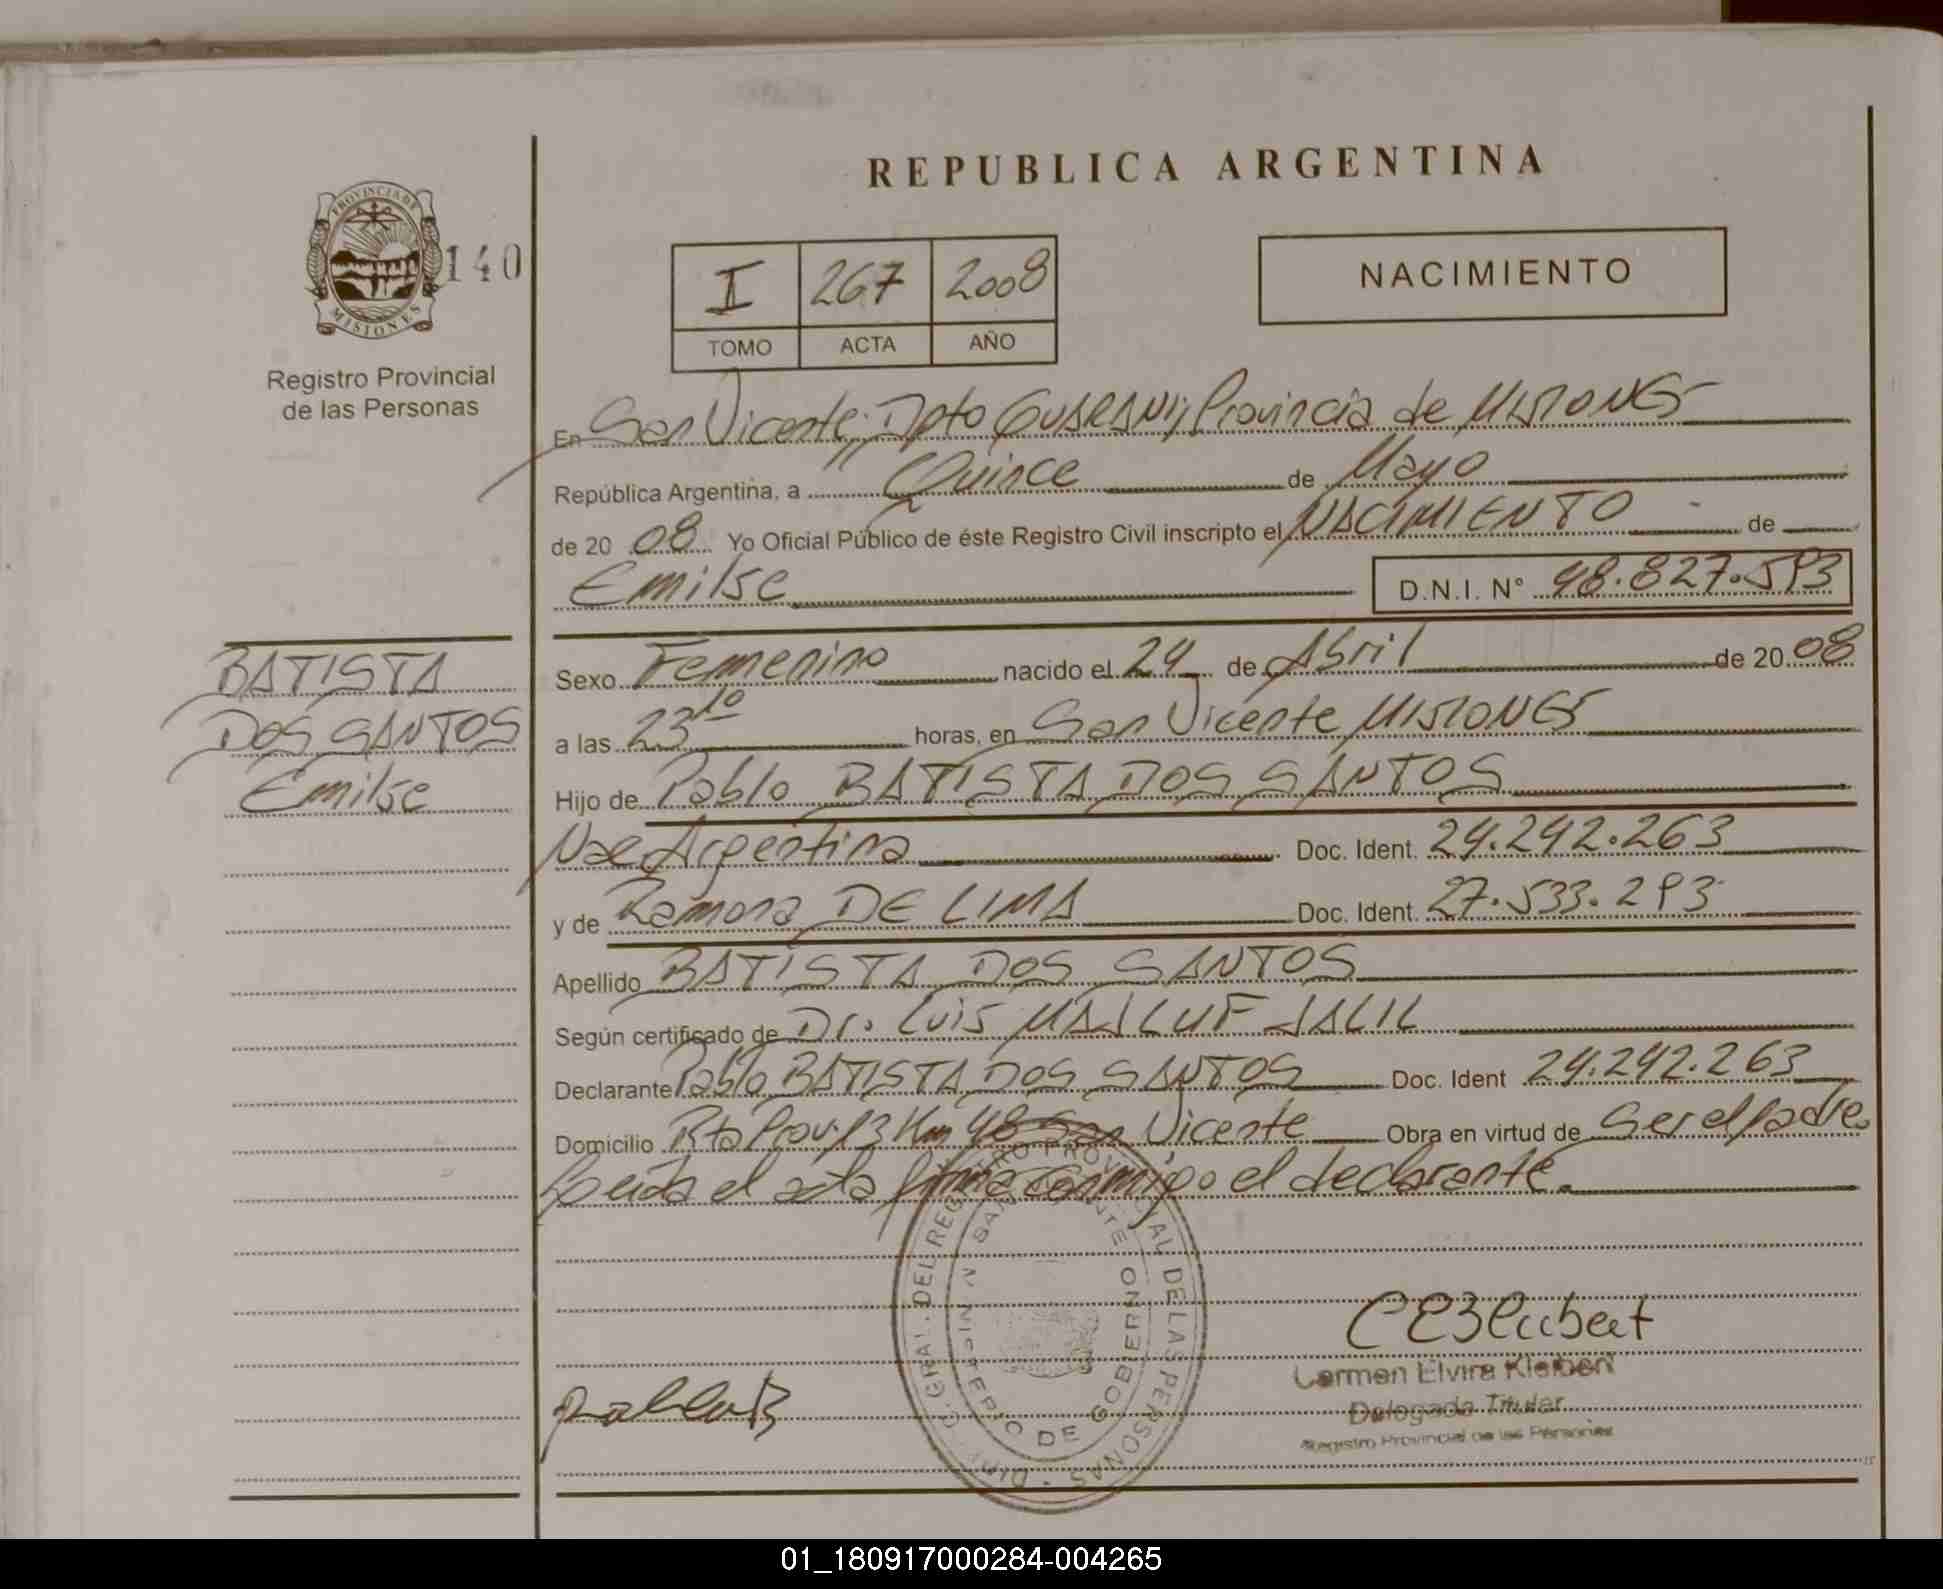 REPUBLICA ARGENTINA
PROVINCIA DE
MISIONES
140
Registro Provincial
de las Personas
I 267 2008
TOMO ACTA AÑO
NACIMIENTO
En San Vicente; Dpto GUARANI; Provincia de MISIONES
República Argentina, a Quince de Mayo
de 20 08 Yo Oficial Público de éste Registro Civil inscripto el NACIMIENTO de
Emilse D.N.I. N° 48.827.593
BATISTA
DOS SANTOS
Emilse
Sexo Femenino nacido el 24 de Abril de 20 08
a las 23 10 horas, en San Vicente MISIONES
Hijo de Pablo BATISTA DOS SANTOS
Nac Argentina Doc. Ident. 24.242.263
y de Ramona DE LIMA Doc. Ident. 27.533.293
Apellido BATISTA DOS SANTOS
Según certificado de Dr. Luis MASLUF JALIL
Declarante Pablo BATISTA DOS SANTOS Doc. Ident 24.242.263
Domicilio Rta Prov. 13 Km 48 San Vicente Obra en virtud de Ser el padre.
Leida el acta firma conmigo el declarante.
DIREC. GRAL. DEL REGISTRO PROVINCIAL DE LAS PERSONAS
SAN VICENTE
MINISTERIO DE GOBIERNO
Carmen Elvira Kleibert
Delegada Titular
Registro Provincial de las Personas
Pablo B
01_180917000284-004265